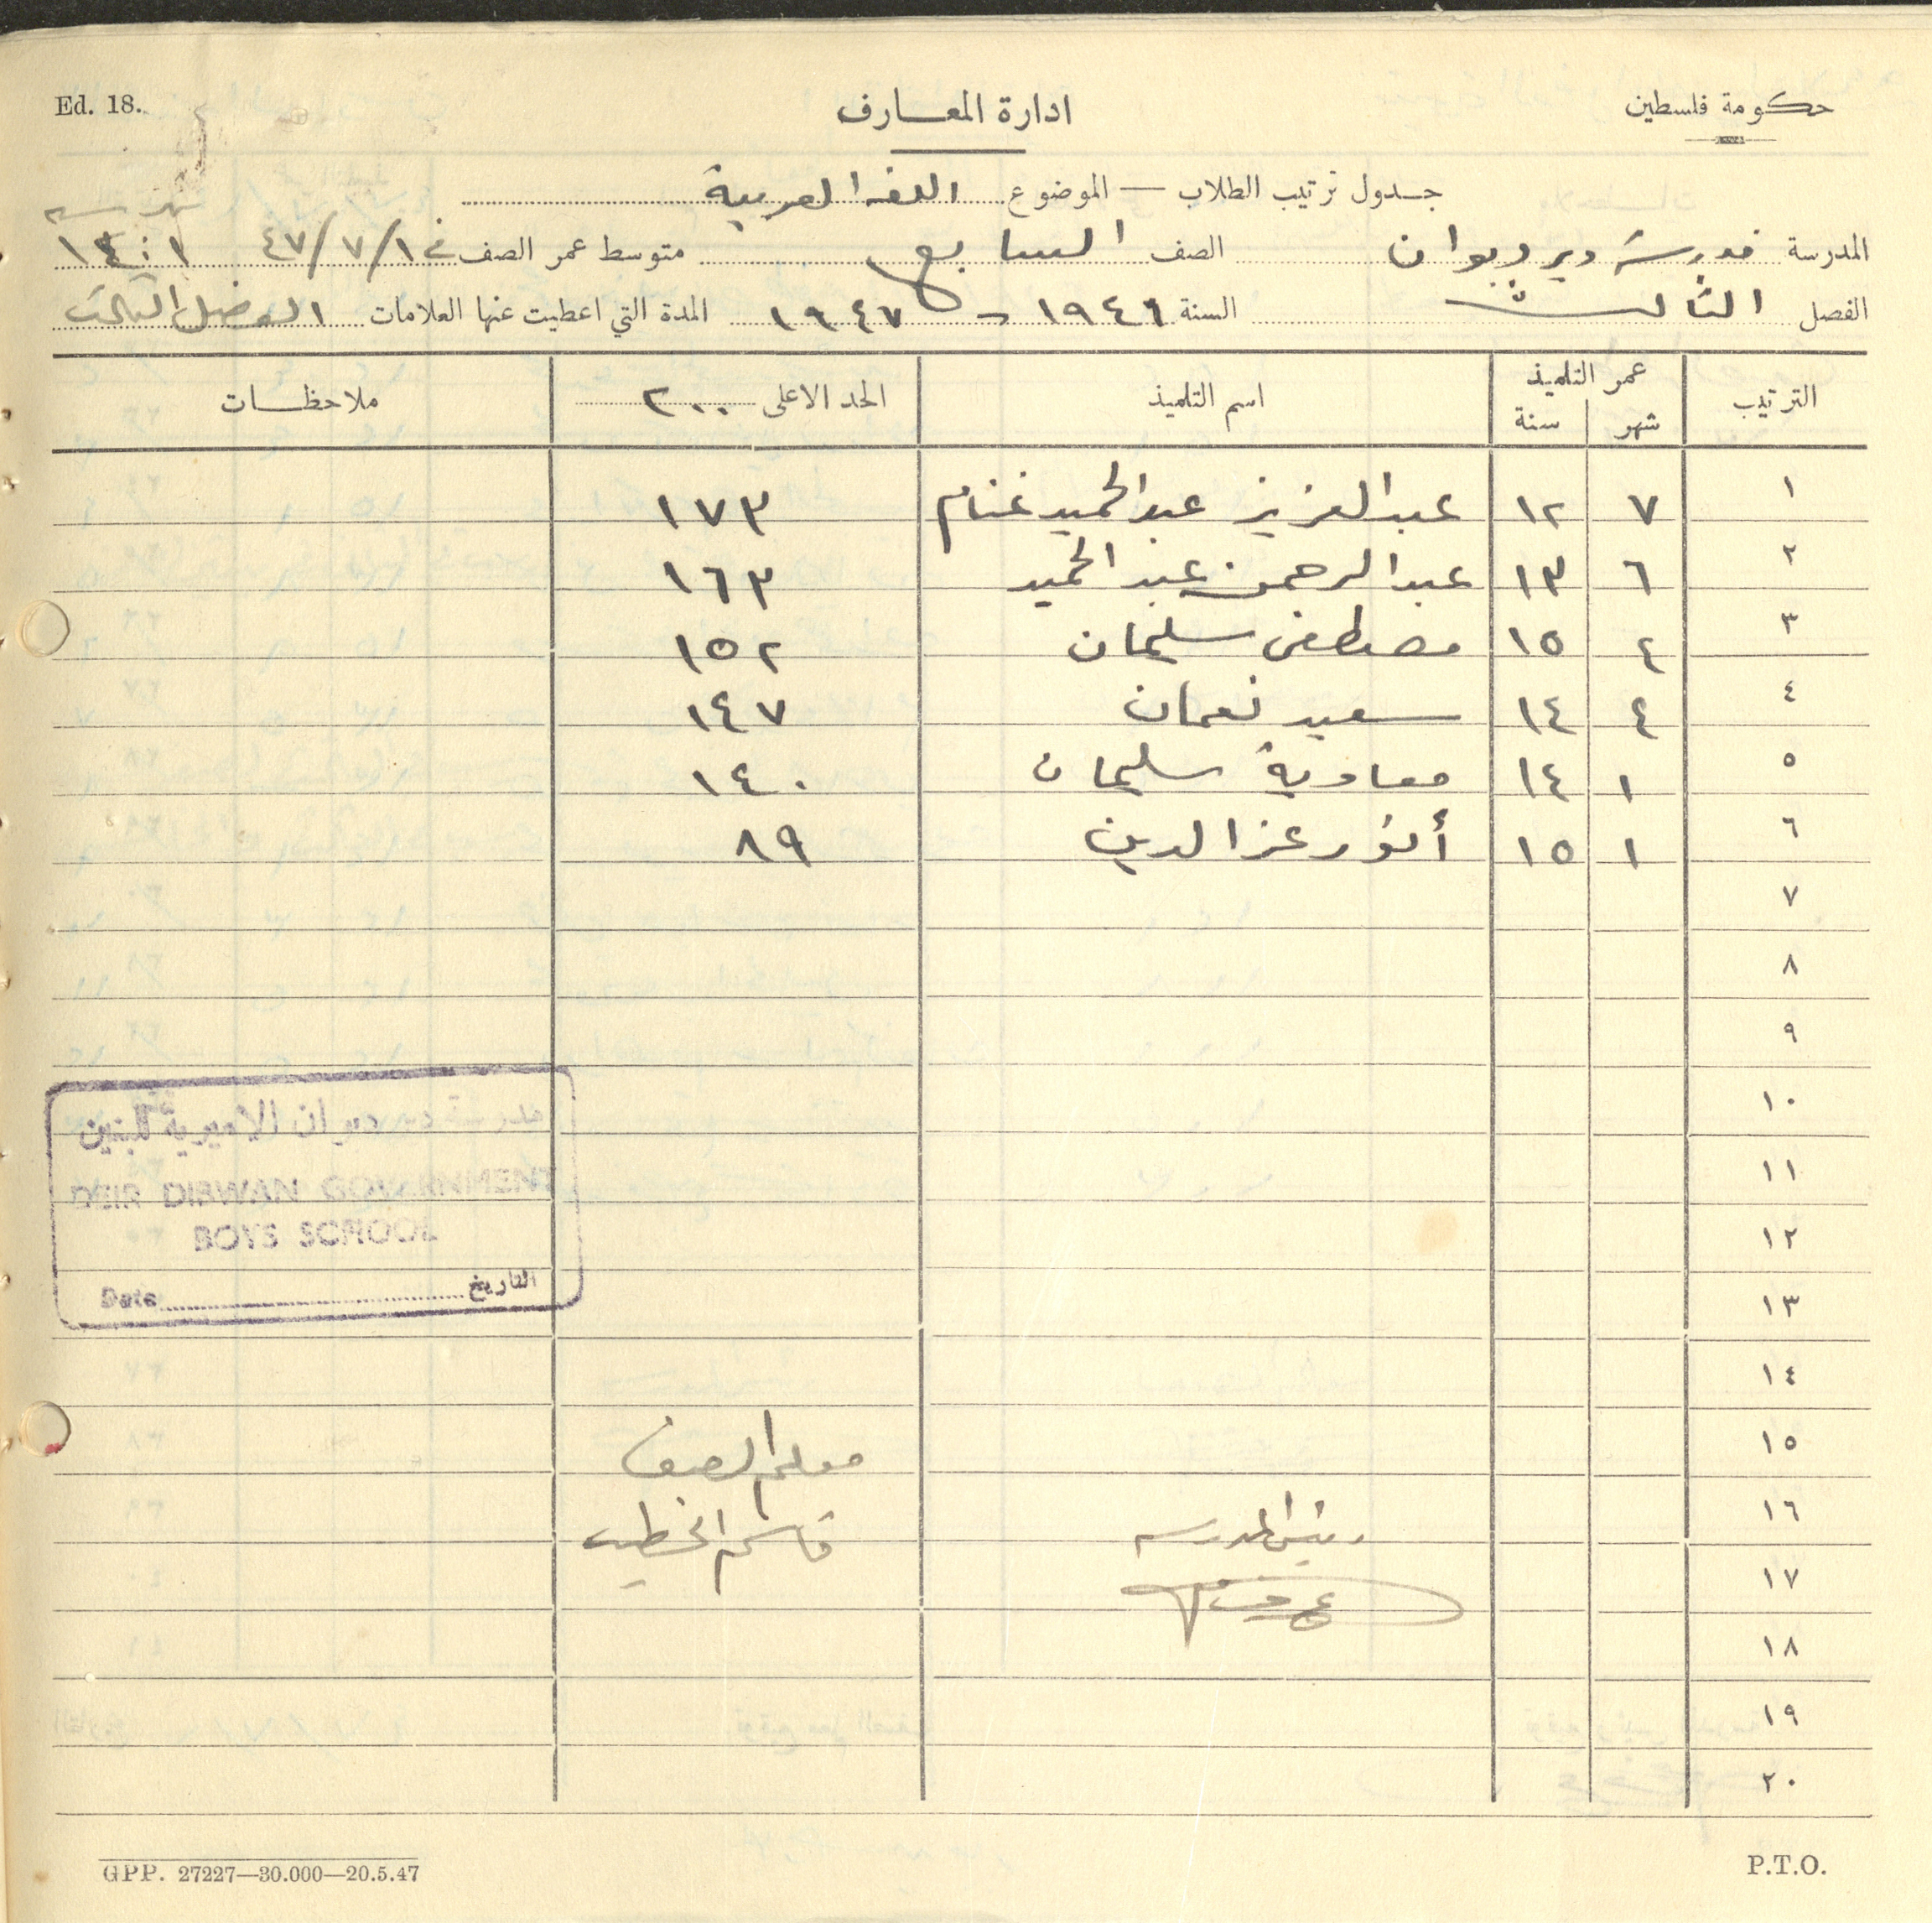 حكومة فلسطين
ادارة المعارف
Ed. 18.
جدول ترتيب الطلاب — الموضوع اللغه العربية
شهر سنه
المدرسة مدرسة ديردبوان الصف السابع متوسط عمر الصف في ٤٧/٧/١ ١ : ١٤
الفصل الثالث السنة ١٩٤٦ - ١٩٤٧ المدة التي اعطيت عنها العلامات الفصل الثالث
الترتيب عمر التلميذ اسم التلميذ الحد الاعلى ٢٠٠ ملاحظات
شهر سنة
١ ٧ ١٢ عبد العزيز عبد الحميد غنام ١٧٣
٢ ٦ ١٣ عبد الرحمن عبد الحميد ١٦٣
٣ ٤ ١٥ مصطفى سليمان ١٥٢
٤ ٤ ١٤ سعيد نعمان ١٤٧
٥ ١ ١٤ معاوية سليمان ١٤٠
٦ ١ ١٥ أنور عز الدين ٨٩
٧
٨
٩
١٠
مدرسة دير دبوان الاميرية للبنين
١١
DEIR DIBWAN GOVERNMENT
١٢
BOYS SCHOOL
١٣
Date التاريخ
١٤
١٥
معلم الصف
١٦
رئيس المدرسه
قاسم الخطيب
١٧
١٨
١٩
٢٠
GPP. 27227—30.000—20.5.47
P.T.O.